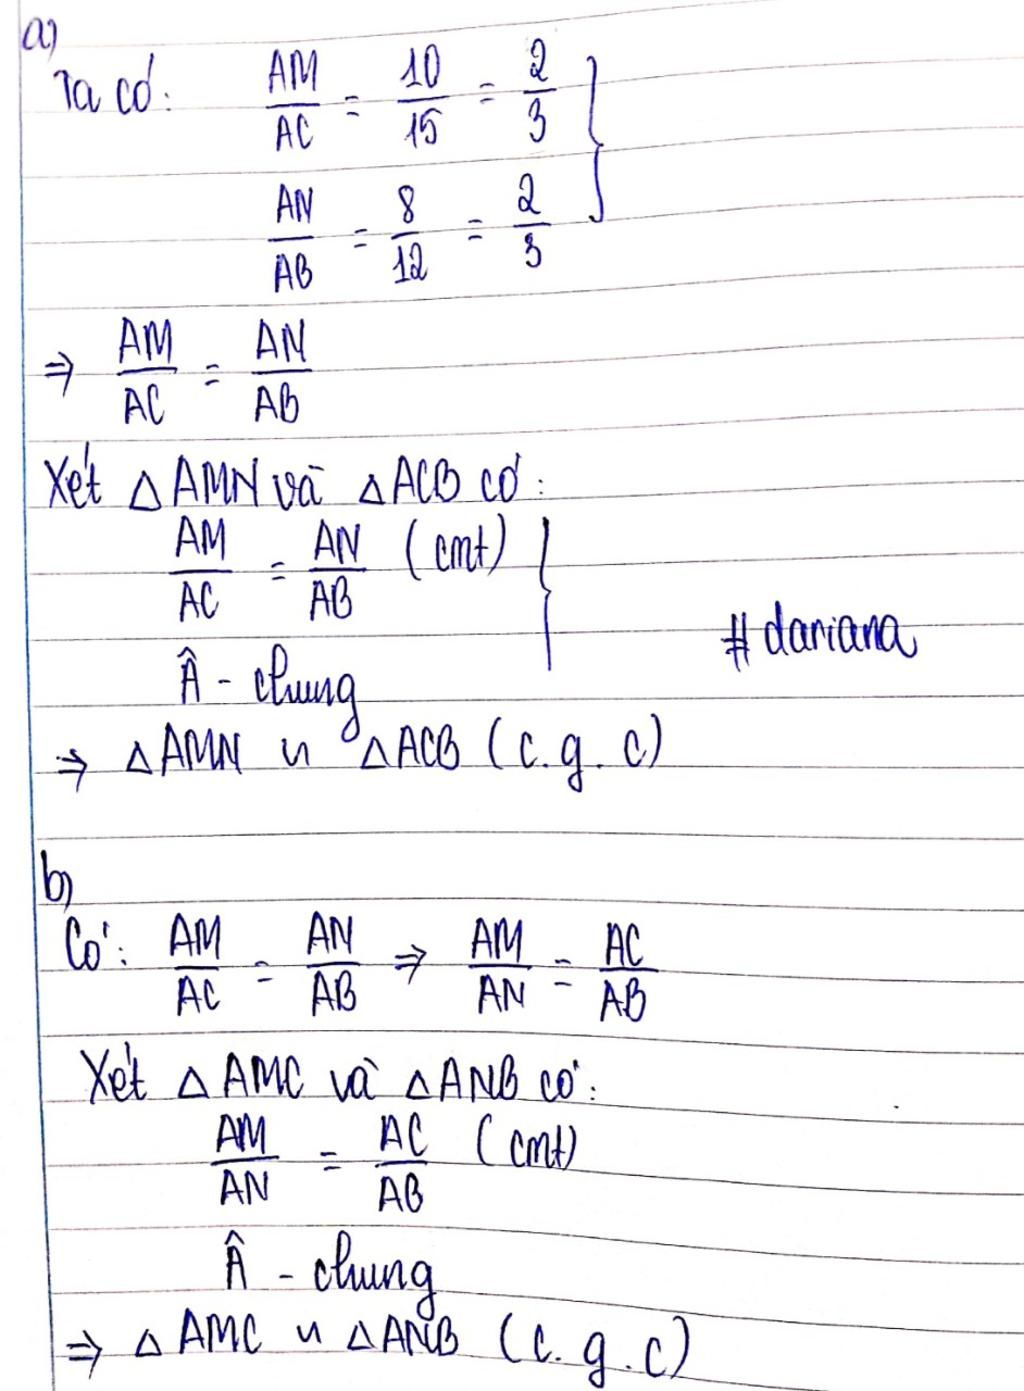 a)
Ta có: AM/AC = 10/15 = 2/3 }
AN/AB = 8/12 = 2/3
⇒ AM/AC = AN/AB
Xét △AMN và △ACB có:
AM/AC = AN/AB (cmt) }
#dariana
Â - chung
⇒ △AMN ∽ △ACB (c.g.c)
b)
Có: AM/AC = AN/AB ⇒ AM/AN = AC/AB
Xét △AMC và △ANB có:
AM/AN = AC/AB (cmt)
Â - chung
⇒ △AMC ∽ △ANB (c.g.c)